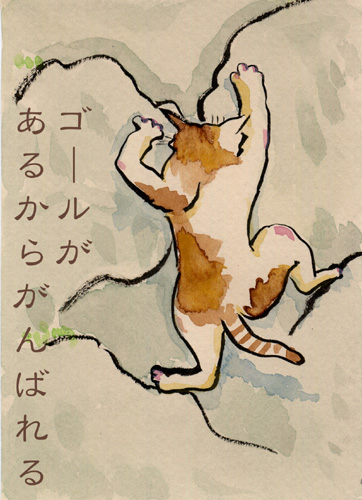 ゴールが
あるからがんばれる